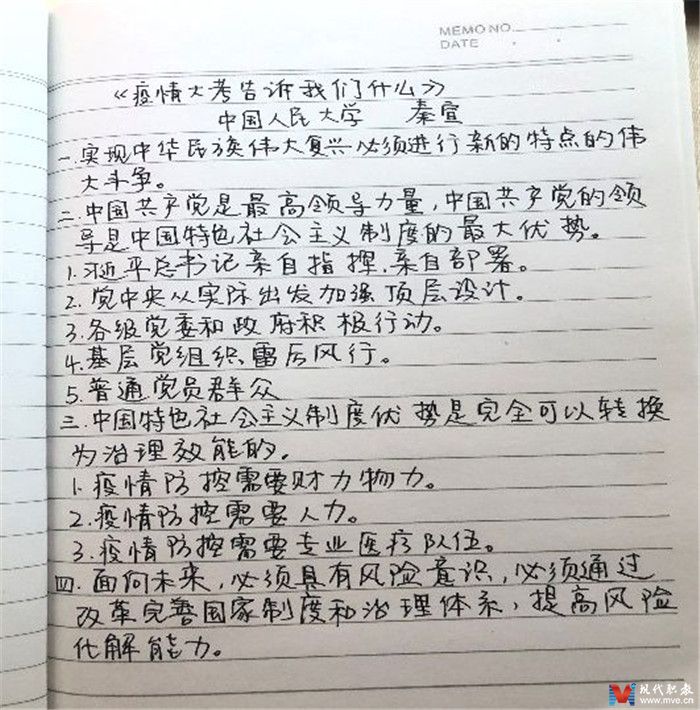 MEMO NO.
DATE
《疫情大考告诉我们什么》
中国人民大学 秦宣
一.实现中华民族伟大复兴必须进行新的特点的伟
大斗争。
二.中国共产党是最高领导力量,中国共产党的领
导是中国特色社会主义制度的最大优势。
1.习近平总书记亲自指挥.亲自部署。
2.党中央从实际出发加强顶层设计。
3.各级党委和政府积极行动。
4.基层党组织雷厉风行。
5.普通党员群众
三.中国特色社会主义制度优势是完全可以转换
为治理效能的。
1.疫情防控需要财力物力。
2.疫情防控需要人力。
3.疫情防控需要专业医疗队伍。
四.面向未来,必须具有风险意识,必须通过
改革完善国家制度和治理体系,提高风险
化解能力。
现代职教
www.mve.cn